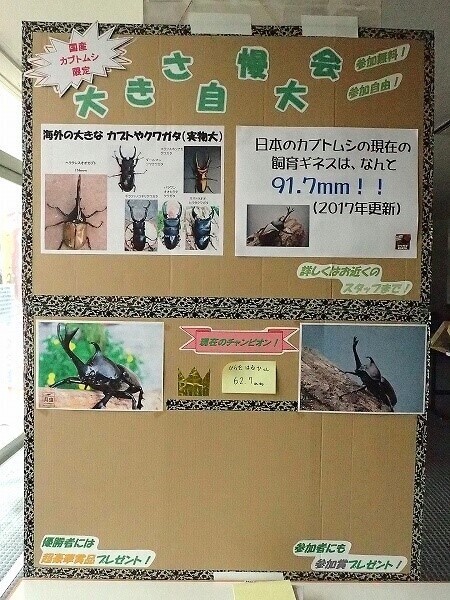 国産
カブトムシ
限定
大きさ自慢大会
参加無料！
参加自由！
海外の大きな カブトやクワガタ(実物大)
ヘラクレスオオカブト
日本のカブトムシの現在の
飼育ギネスは、なんと
91.7mm！！
(2017年更新)
詳しくはお近くの
スタッフまで！
現在のチャンピオン！
62.7mm
優勝者には
超豪華賞品プレゼント！
参加者にも
参加賞プレゼント！